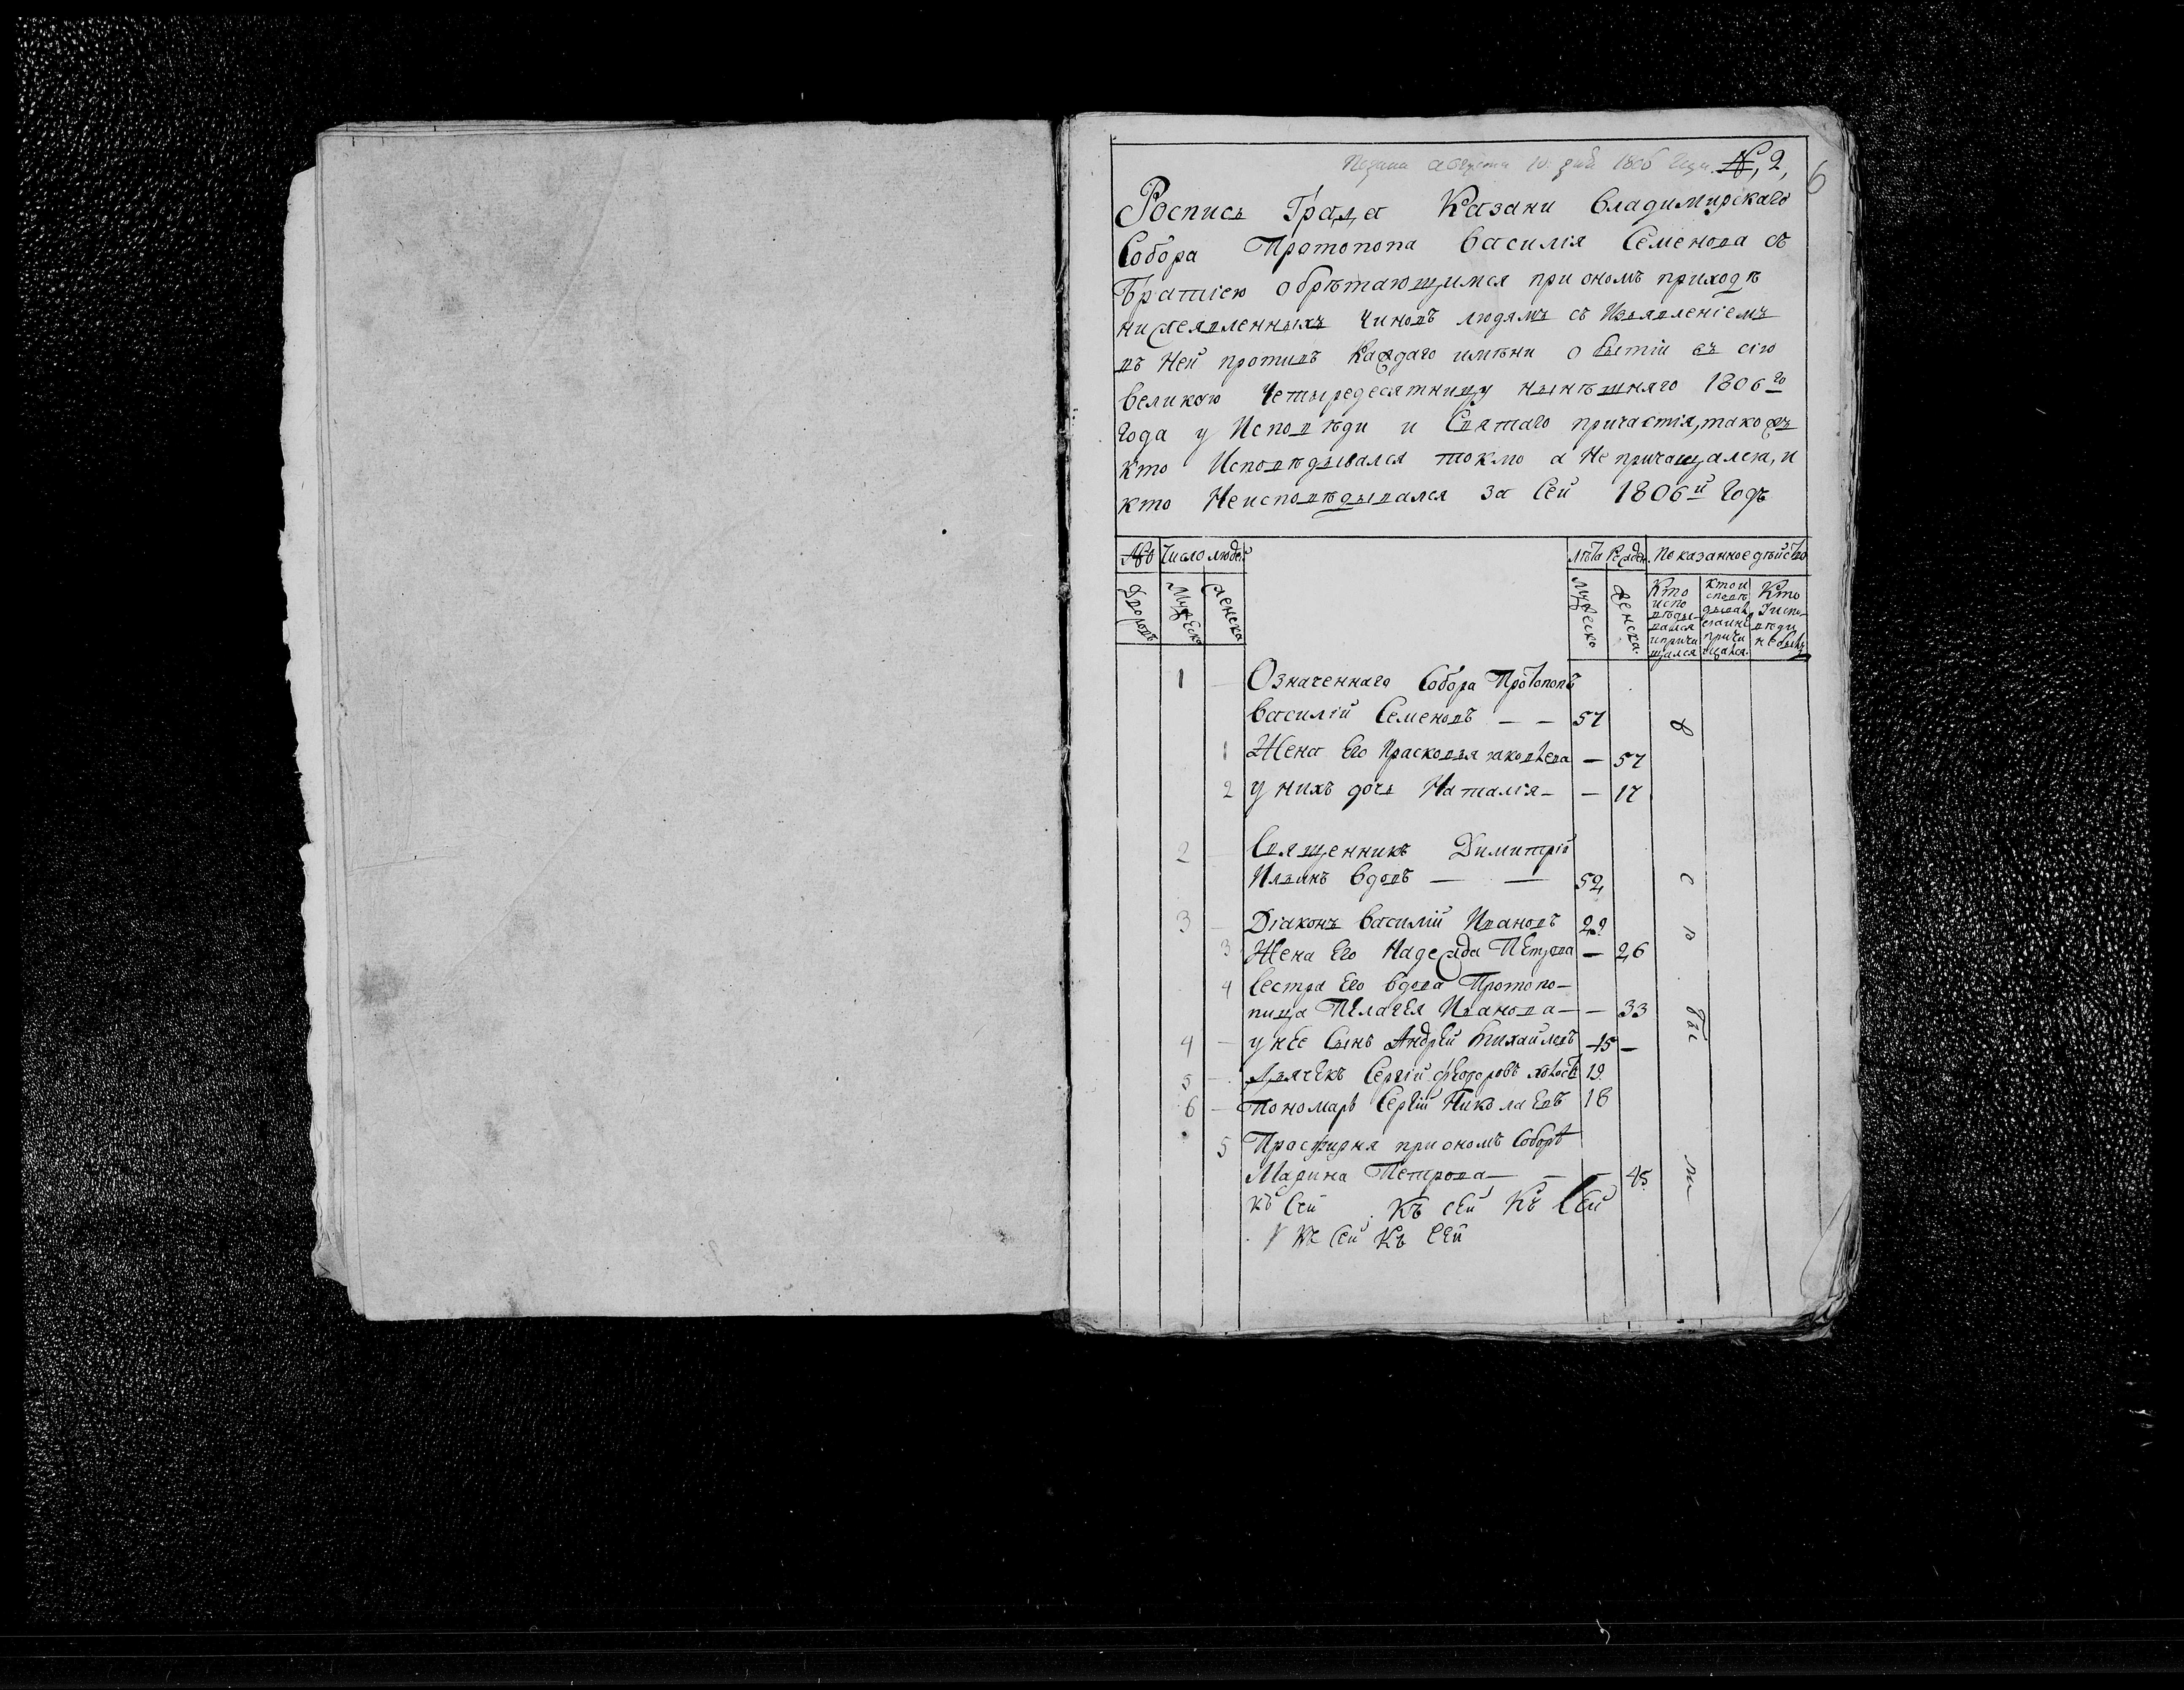 августа 10. дня 1806 года. №, 2,
6
Роспись Града Казани Владимирскаго
Собора Протопопа Василія Семенова съ
Братіею обрѣтающимся при ономъ приходѣ
нижеявленныхъ чиновъ людямъ съ Изъявленіемъ
въ Ней противъ каждаго имѣни о бытіи въ сію
великою Четыредесятницу нынѣшняго 1806го
года у Исповѣди и Святаго причастія, такожъ
кто Исповѣдывался токмо а Не причащался, и
кто Неисповѣдывался за Сей 1806й Годъ
№ Число людей Лѣта Рожден. Показанное дѣйство
Дворовъ Мужеска Женска Мужеско Женска. Кто исповѣдывался и причащался Кто исповѣдывался а не причащался Кто У исповѣди не былъ
1 — Означеннаго Собора Протопопъ
Василій Семеновъ — — 57
1 Жена Его Прасковья Яковлева — 57
2 у нихъ дочь Наталія — — 17
2 — Священникъ Димитрій
Ильинъ вдовъ — — 52
3 — Діаконъ Василій Ивановъ 29
3 Жена Его Надежда Петрова — 26
4 Сестра Его вдова Протопо-
пица Пелагея Иванова — — 33
4 — у нее Сынъ Андрей Михайловъ — 15 —
5 — Дьячекъ Сергій Феодоровъ холостъ 19
6 — Пономарь Сергій Николаевъ 18
5 Просфирня при ономъ Соборѣ
Марина Петрова — — — 45
къ Сей къ сей Къ Сей
къ Сей Къ Сей
В с
ѣ
бы
ли